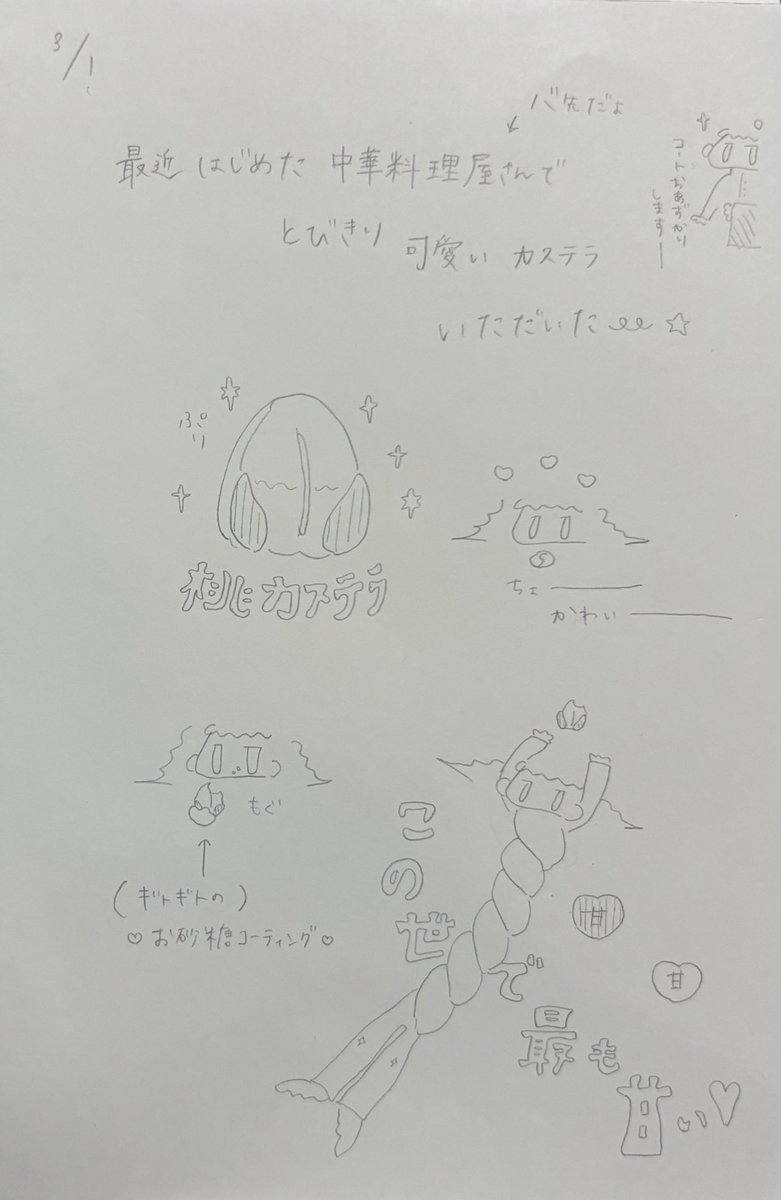 3/1
バ先だよ
最近 はじめた 中華料理屋さんで
とびきり 可愛い カステラ
いただいた
コートおあずかり
します―
ぷり
桃カステラ
ちょ――
かわい――
もぐ
(ギトギトの)
♡お砂糖コーティング♡
この世で
最も
甘い♡
甘
甘